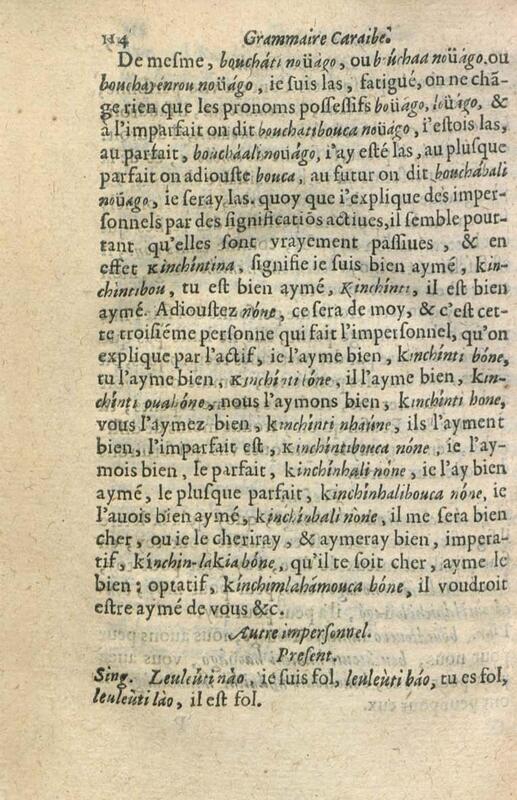 114 Grammaire Caraibe.
De mesme, bouchàti noüágo, ou bòuchaa noüágo. ou
bouchayénrou noüágo, ie suis las, fatigué, on ne chã-
ge rien que les pronoms possessifs boüago, loüago, &
à l'imparfait on dit bouchatibouca noüágo, i'estois las,
au parfait, bouchàali noüágo, i'ay esté las, au plusque
parfait on adiouste bouca, au futur on dit bouchábali
noüágo, ie seray las. quoy que i'explique des imper-
sonnels par des significatiõs actiues, il semble pour-
tant qu'elles sont vrayement passiues, & en
effet Kinchíntina, signifie ie suis bien aymé, kin-
chíntibou, tu est bien aymé, Kinchínti, il est bien
aymé. Adioustez nóne, ce sera de moy, & c'est cet-
te troisiéme personne qui fait l'impersonnel, qu'on
explique par l'actif, ie l'ayme bien, kinchínti bóne,
tu l'ayme bien, Kinchínti lóne, il l'ayme bien, kin-
chínti ouabóne, nous l'aymons bien, kinchínti hone,
vous l'aymez bien, kinchínti nhaúne, ils l'ayment
bien, l'imparfait est, Kinchíntibouca nóne, ie l'ay-
mois bien, le parfait, kinchínhali nóne, ie l'ày bien
aymé, le plusque parfait, kinchínhalibouca nóne, ie
l'auois bien aymé, kinchínbali nòne, il me sera bien
cher, ou ie le cheriray, & aymeray bien, impera-
tif, kínchin-lakia bóne, qu'il te soit cher, ayme le
bien; optatif, kínchimlahámouca bóne, il voudroit
estre aymé de vous &c.
Autre impersonnel.
Present.
Sing. Leuleùti nào, ie suis fol, leuleùti báo, tu es fol,
leuleùti lào, il est fol.